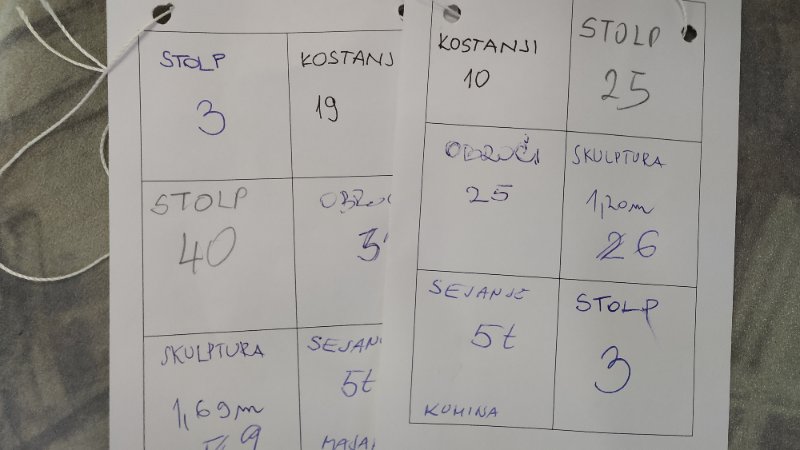 STOLP
3
KOSTANJ
19
STOLP
40
SKULPTURA
1,69m
SEJAN
5t
KOSTANJI
10
STOLP
25
OBROČI
25
SKULPTURA
1,20m
26
SEJANJE
5t
KUMINA
STOLP
3